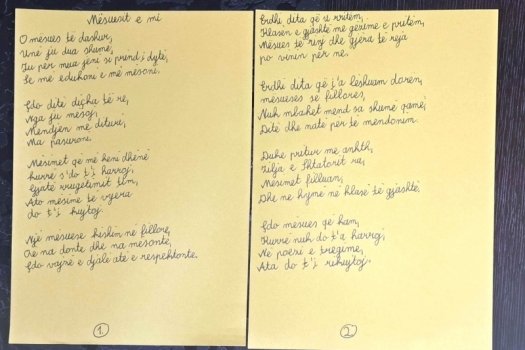 Mësuesit e mi
O mësues të dashur,
Unë ju dua shumë,
Ju për mua jeni si prind i dytë,
Se më edukoni e më mësoni.
Çdo ditë diçka të re,
Nga ju mësoj,
Mendjen me dituri,
Ma pasuroni.
Mësimet që më keni dhënë
kurrë s'do t'i harroj,
Gjatë rrugëtimit tim,
Ato mësime të vyera
do t'i kujtoj.
Një mësuese kishim në fillore,
Që na donte dhe na mësonte,
Çdo vajzë e djalë atë e respektonte.
1
Erdhi dita që u rritëm,
Klasën e gjashtë me gëzime e pritëm,
Mësues të rinj dhe gjëra të reja
po vinin për ne.
Erdhi dita që t'a lëshuam dorën,
mësueses së fillores,
Nuk mbahet mend sa shumë qamë,
Ditë dhe natë për të mendonim.
Duke pritur me ankth,
Zilja e Shtatorit ra,
Mësimet filluan,
Dhe ne hymë në klasë të gjashtë.
Çdo mësues që kam,
Kurrë nuk do t'a harroj,
Në poezi e tregime,
Ata do t'i rikujtoj.
2